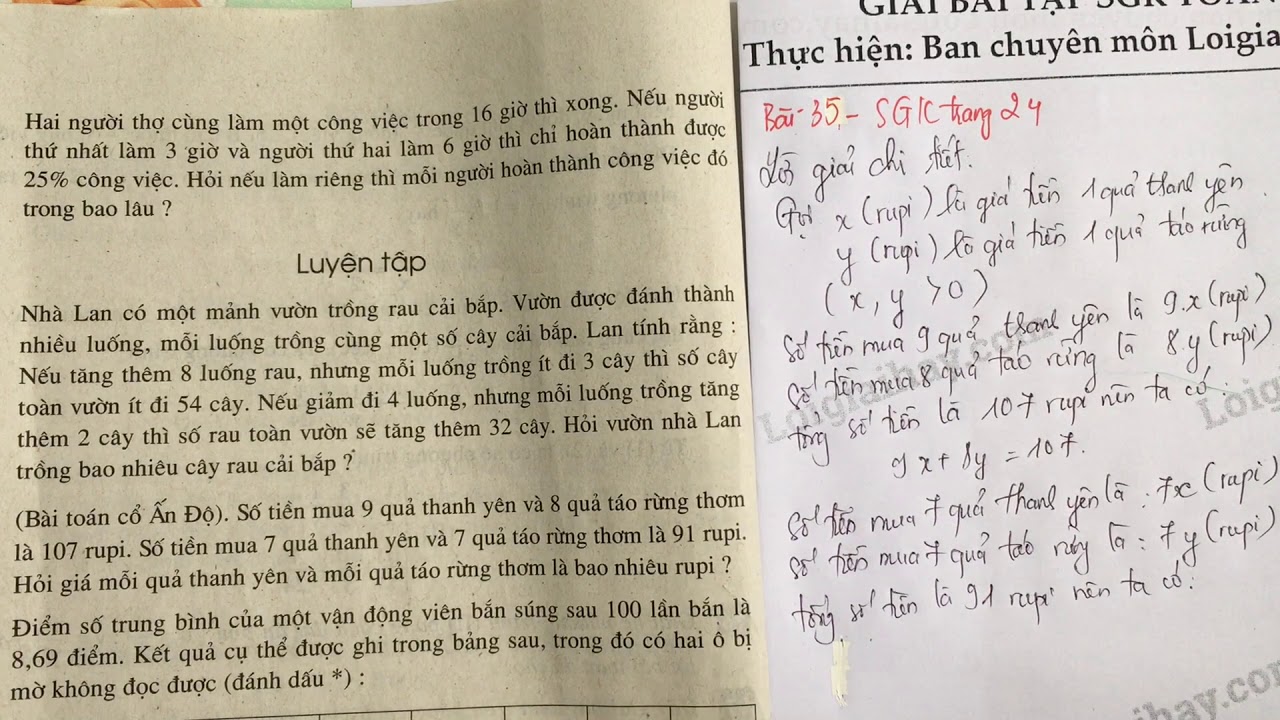 Hai người thợ cùng làm một công việc trong 16 giờ thì xong. Nếu người
thứ nhất làm 3 giờ và người thứ hai làm 6 giờ thì chỉ hoàn thành được
25% công việc. Hỏi nếu làm riêng thì mỗi người hoàn thành công việc đó
trong bao lâu ?
Luyện tập
Nhà Lan có một mảnh vườn trồng rau cải bắp. Vườn được đánh thành
nhiều luống, mỗi luống trồng cùng một số cây cải bắp. Lan tính rằng :
Nếu tăng thêm 8 luống rau, nhưng mỗi luống trồng ít đi 3 cây thì số cây
toàn vườn ít đi 54 cây. Nếu giảm đi 4 luống, nhưng mỗi luống trồng tăng
thêm 2 cây thì số rau toàn vườn sẽ tăng thêm 32 cây. Hỏi vườn nhà Lan
trồng bao nhiêu cây rau cải bắp ?
(Bài toán cổ Ấn Độ). Số tiền mua 9 quả thanh yên và 8 quả táo rừng thơm
là 107 rupi. Số tiền mua 7 quả thanh yên và 7 quả táo rừng thơm là 91 rupi.
Hỏi giá mỗi quả thanh yên và mỗi quả táo rừng thơm là bao nhiêu rupi ?
Điểm số trung bình của một vận động viên bắn súng sau 100 lần bắn là
8,69 điểm. Kết quả cụ thể được ghi trong bảng sau, trong đó có hai ô bị
mờ không đọc được (đánh dấu *) :
GIẢI BÀI TẬP SGK TOÁN
Thực hiện: Ban chuyên môn Loigia
Bài 35 - SGK trang 24
Lời giải chi tiết.
Gọi x (rupi) là giá tiền 1 quả thanh yên
y (rupi) là giá tiền 1 quả táo rừng
(x, y > 0)
Số tiền mua 9 quả thanh yên là 9.x (rupi)
Số tiền mua 8 quả táo rừng là 8.y (rupi)
tổng số tiền là 107 rupi nên ta có :
9x + 8y = 107.
Số tiền mua 7 quả thanh yên là : 7x (rupi)
Số tiền mua 7 quả táo rừng là : 7y (rupi)
tổng số tiền là 91 rupi nên ta có :
Loigiaihay.com
Loigi
aihay.com